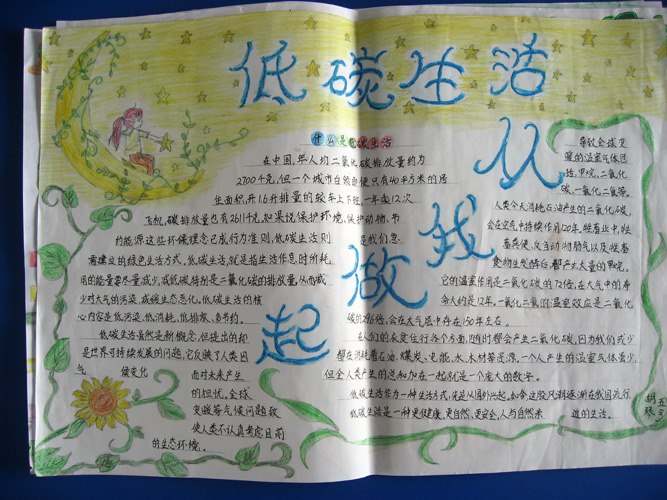 低碳生活
从我做起
什么是低碳生活
在中国,年人均二氧化碳排放量约为
2700千克,但一个城市白领即便只有40平方米的居
住面积,开1.6升排量的轿车上下班,一年乘12次
飞机,碳排放量也有2611千克,如果说保护环境、保护动物、节
约能源这些环保理念已成行为准则,低碳生活则是我们急
需建立的绿色生活方式,低碳生活,就是指生活作息时所耗
用的能量要尽量减少,减低碳特别是二氧化碳的排放量,从而减
少对大气的污染,减缓生态恶化,低碳生活的核
心内容是低污染,低消耗,低排放,多节约。
低碳生活虽然是新概念,但提出的却
是世界可持续发展的问题,它反映了人类因
气候变化面对未来产生
的担忧,全球
变暖等气候问题致
使人类不认真考虑目前
的生态环境。
导致全球变
暖的温室气体包
括,甲烷,二氧化
碳,一氧化二氮等,
人类今天消耗石油产生的二氧化碳,
会在空气中持续作用120年,牲畜
粪便,及
食物垃圾
都产大量的甲烷,
它的温室作用是二氧化碳的72倍,在大气中的寿
命大约是12年,一氧化二氮的温室效应是二氧化
碳的296倍,会在大气层中存在150年左右。
在人们的衣食住行各个方面,随时都会产生二氧化碳,因为我们或少
都在消耗着石油、煤炭、电能、水、木材等能源,一个人产生的温室气体虽少,
但全人类产生的总和加在一起就是一个庞大的数字。
低碳生活作为一种生活方式,先是从国外兴起,如今这股风潮逐渐在我国流行,
低碳生活是一种更健康、更自然、更安全,人与自然的生活。